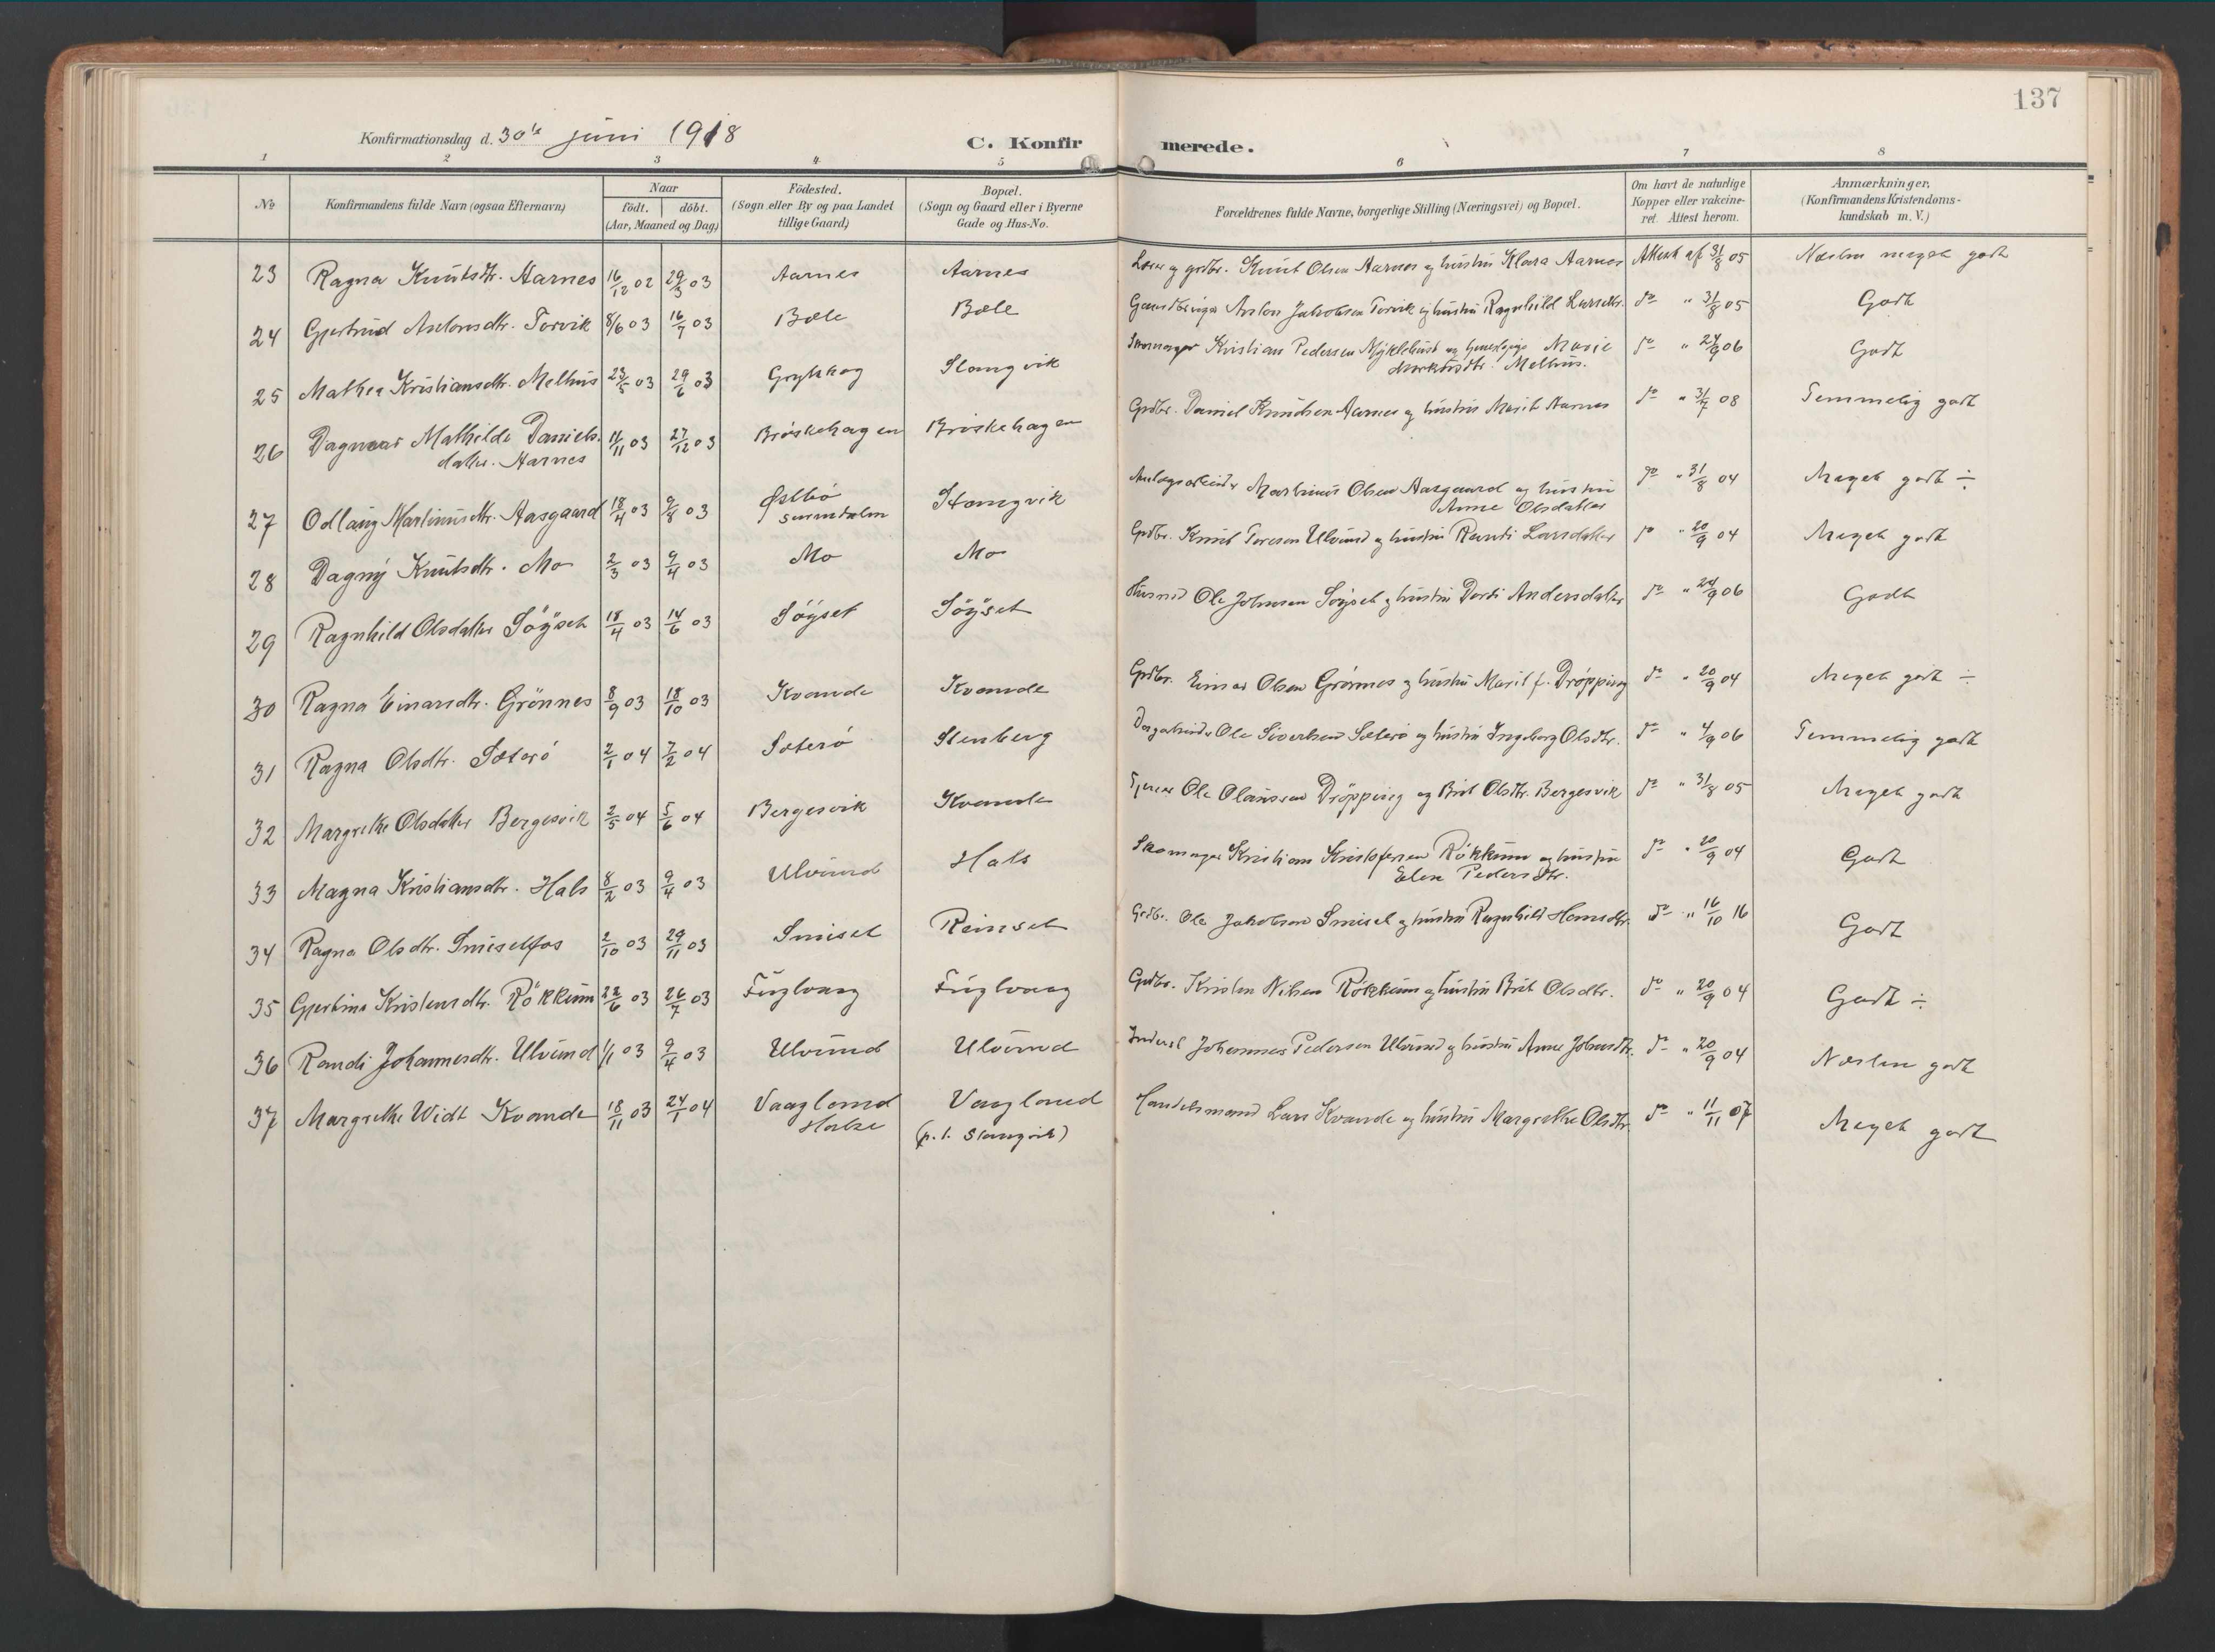 137
Konfirmationsdag d. 30te juni 1918
C. Konfirmerede.
1 2 3 4 5 6 7 8
No | Konfirmandens fulde Navn (ogsaa Efternavn) | Naar födt. | döbt. (Aar, Maaned og Dag) | Födested. (Sogn eller By og paa Landet tillige Gaard) | Bopæl. (Sogn og Gaard eller i Byerne Gade og Hus-No. | Forældrenes fulde Navne, borgerlige Stilling (Næringsvei) og Bopæl. | Om havt de naturlige Kopper eller vakcineret. Attest herom. | Anmærkninger, (Konfirmandens Kristendomskundskab m. V.)
23 Ragna Knutsdtr. Aarnes 16/12 02 29/3 03 Aarnes Aarnes Lærer og grdbr. Knut Olsen Aarnes og hustru Klara Aarnes Attest af 31/8 05 Næsten meget godt
24 Gjertrud Aslomsdtr. Torvik 8/6 03 16/7 03 Bæle Bæle Jakobsen Torvik og hustru Ragnhild Larsdtr. do " 31/8 05 Godt
25 Mathea Kristiansdtr. Melhus 23/5 03 29/6 03 Grythaug Stangvik Skomager Kristian Pedersen Myklehust og Marie
Markusdtr. Melhus. do " 24/9 06 Godt
26 Dagmar Mathilde Daniels-
datter. Aarnes 11/11 03 27/12 03 Brøskehagen Brøskehagen Grdbr. Daniel Knudsen Aarnes og hustru Marit Aarnes do " 31/7 08 Temmelig godt
27 Odlaug Martinusdtr. Aasgaard 18/4 03 9/8 03 Østbö
Surendalen Stangvik Anlægsarbeider Martinus Olsen Aasgaard og hustru
Anne Olsdatter do " 31/8 04 Meget godt ÷
28 Dagny Knutsdtr. Mo 2/3 03 9/4 03 Mo Mo Grdbr. Knut Toresen Ulvund og hustru Randi Larsdatter do " 20/9 04 Meget godt
29 Ragnhild Olsdatter Söyset 18/4 03 14/6 03 Söyset Söyset Husmd Ole Johnsen Söyset og hustru Dordi Andersdatter do " 24/9 06 Godt
30 Ragna Einarsdtr. Grönnes 8/9 03 18/10 03 Kvande Kvande Grdbr. Einar Olsen Grönnes og hustru Marit f. Dröpping do " 20/9 04 Meget godt ÷
31 Ragna Olsdtr. Sæterö 2/1 04 7/2 04 Sæterö Stenberg Ole Sivertsen Sæterö og hustru Ingeborg Olsdtr. do " 4/9 06 Temmelig godt
32 Margrethe Olsdatter Bergesvik 2/5 04 5/6 04 Bergesvik Kvande Tjener Ole Olaussen Dröpping og Brit Olsdtr. Bergesvik do " 31/8 05 Meget godt
33 Magna Kristiansdtr. Hals 8/2 03 9/4 03 Ulvund Hals Skomager Kristian Kristofersen Rökkum og hustru
Elen Pedersdtr. do " 20/9 04 Godt
34 Ragna Olsdtr. Smisetfos 2/10 03 29/11 03 Smiset Reinset Grdbr. Ole Jakobsen Smiset og hustru Ragnhild Hansdtr. do " 16/10 16 Godt
35 Gjertine Kristensdtr. Rökkum 22/6 03 26/7 03 Fuglvaag Fuglvaag Grdbr. Kristen Nilsen Rökkum og hustru Brit Olsdtr. do " 20/9 04 Godt ÷
36 Randi Johannesdtr. Ulvund 1/1 03 9/4 03 Ulvund Ulvund Inderst Johannes Pedersen Ulvund og hustru Anne Johnsdtr. do " 20/9 04 Næsten godt
37 Margrethe Widt Kvande 18/11 03 24/1 04 Vaagland
Halse Vaagland
(p.t. Stangvik) Handelsmand Lars Kvande og hustru Margrethe Olsdtr. do " 11/11 07 Meget godt